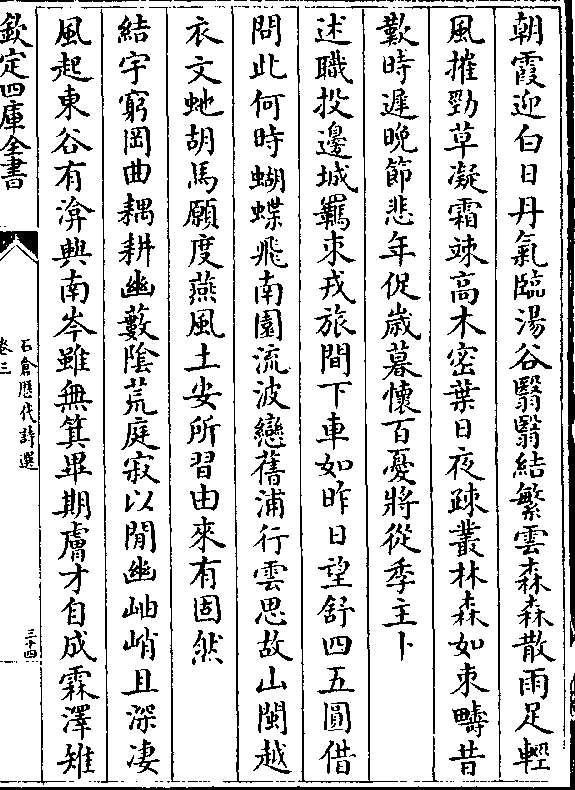 朝霞迎白日丹氣臨湯谷翳翳結繁雲森森散雨足輕
風摧勁草凝霜竦高木密葉日夜疎叢林森如束疇昔
歎時遲晚節悲年促歲暮懷百憂將從季主卜
述職投邊城羈束戎旅間下車如昨日望舒四五圓借
問此何時蝴蝶飛南園流波戀舊浦行雲思故山閩越
衣文虵胡馬願度燕風土安所習由來有固然
結宇窮岡曲耦耕幽藪陰荒庭寂以閒幽岫峭且深凄
風起東谷有渰興南岑雖無箕畢期膚寸自成霖澤雉
欽定四庫全書
石倉歷代詩選
卷三
三十四